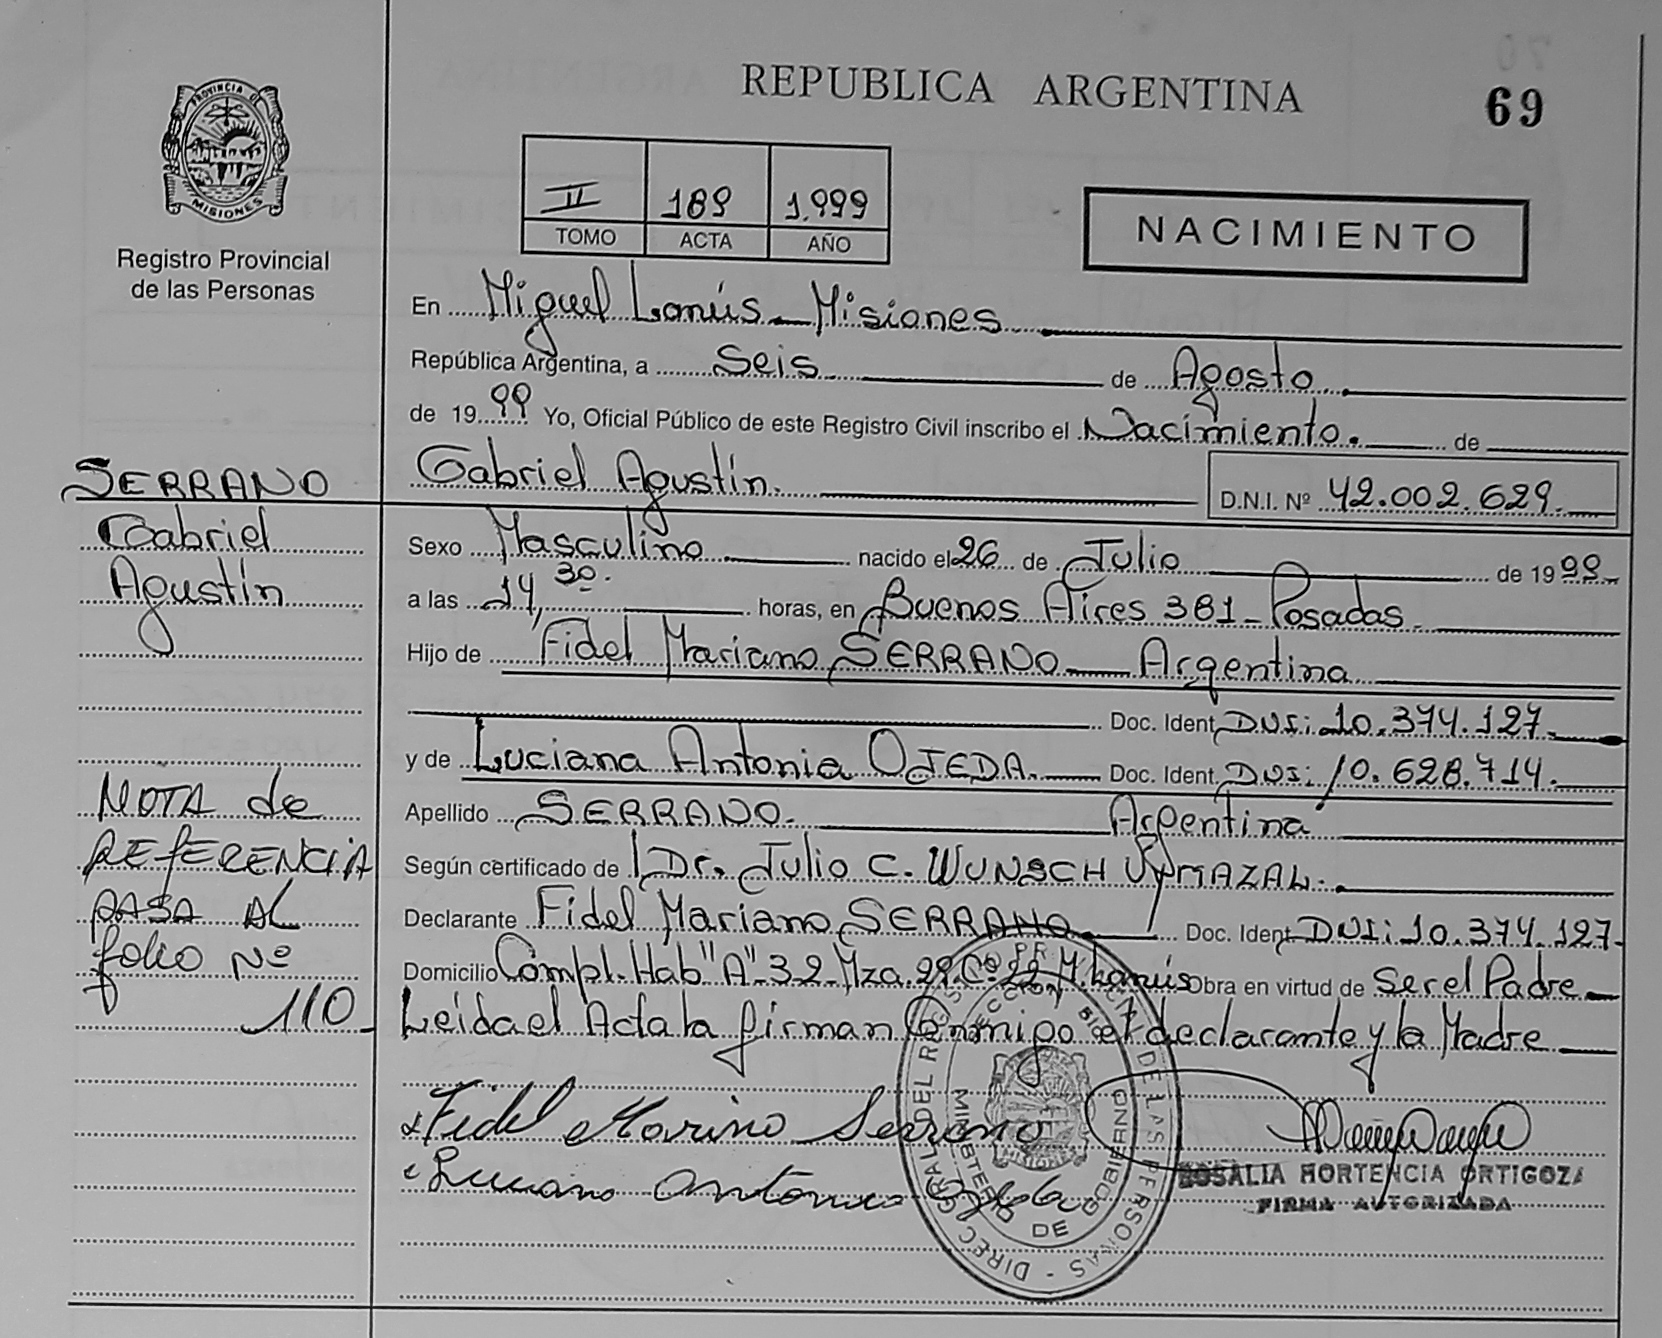 REPUBLICA ARGENTINA
69
PROVINCIA DE
MISIONES
Registro Provincial
de las Personas
II 189 1.999
TOMO ACTA AÑO
NACIMIENTO
En Miguel Lanús - Misiones
República Argentina, a Seis de Agosto
de 1999 Yo, Oficial Público de este Registro Civil inscribo el Nacimiento. de
SERRANO
Gabriel
Agustín
Gabriel Agustín. D.N.I. Nº 42.002.629.
Sexo Masculino nacido el 26 de Julio de 1999
a las 14,30. horas, en Buenos Aires 381 - Posadas.
Hijo de Fidel Mariano SERRANO Argentina
Doc. Ident. DNI: 10.374.127.
y de Luciana Antonia OJEDA. Doc. Ident. DNI: 10.628.714.
Apellido SERRANO. Argentina
Según certificado de Dr. Julio C. WUNSCH VYMAZAL.
Declarante Fidel Mariano SERRANO Doc. Ident. DNI: 10.374.127.
Domicilio Compl. Hab "A" 32 Mza. 29 Cª 22 M. Lanús Obra en virtud de Ser el Padre
Leida el Acta la firman Conmigo el declarante y la Madre
NOTA de
REFERENCIA
PASA AL
folio Nº
110
Fidel Marino Serrano
Luciano Antonia Ojeda
ROSALIA HORTENCIA ORTIGOZA
FIRMA AUTORIZADA
DIREC GRAL DEL REG DE LAS PERSONAS
MINISTERIO DE GOBIERNO